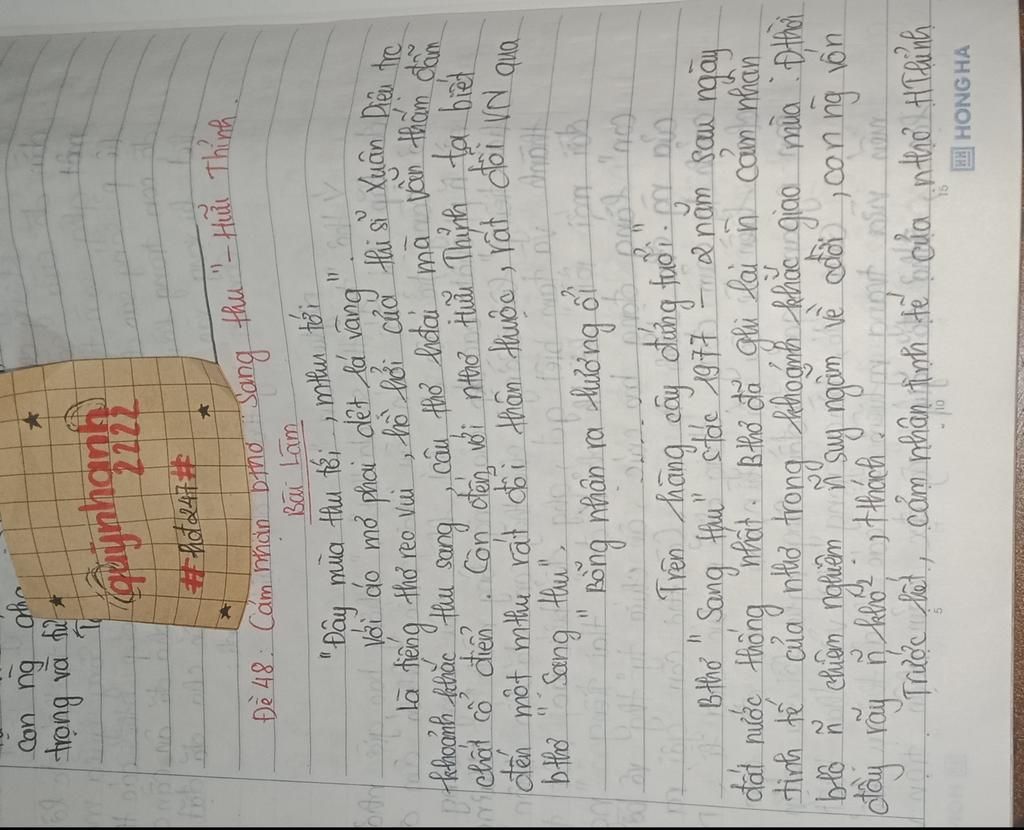 Con ng
trọng và
quỳnhanh
2222
#-hđ247#
Đề 48: Cảm nhận bthơ "Sang thu" - Hữu Thỉnh.
Bài Làm
"Đây mùa thu tới, mthu tới
Với áo mơ phai dệt lá vàng"
Là tiếng thơ reo vui, hồ hởi của thi sĩ Xuân Diệu trc
khoảnh khắc thu sang, câu thơ hđại mà vẫn thấm đẫm
chất cổ điển. Còn đến với nthơ Hữu Thỉnh ta biết
đến một mthu rất đỗi thân thuộc, rất đỗi VN qua
bthơ "Sang thu".
"Bỗng nhận ra hương ổi
.......
Trên hàng cây đứng tuổi."
Bthơ "Sang thu" stác 1977 - 2 năm sau ngày
đất nước thống nhất. Bthơ đã ghi lại ~n cảm nhận
tinh tế của nthơ trong khoảnh khắc giao mùa. Đthời
blộ ~n chiêm nghiệm ~n suy ngẫm về cđời, con ng vốn
đầy rẫy ~n khó², thách.
Trước hết, cảm nhận tinh tế của nthơ HThỉnh
HONG HA
5
10
15